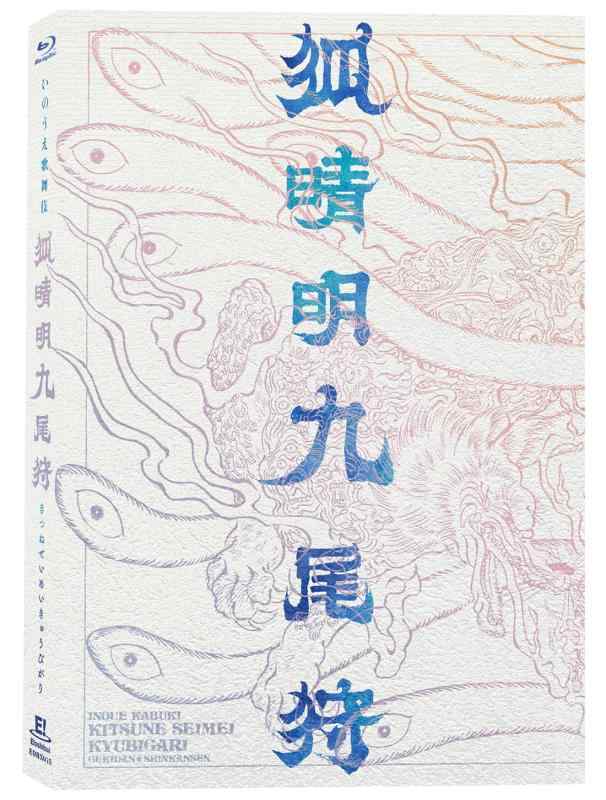 狐晴明九尾狩
Blu-ray Disc
いのうえ歌舞伎
狐晴明九尾狩
きつねせいめいきゅうびがり
E!
Eioshibai
INOUE KABUKI
KITSUNE SEIMEI
KYUBIGARI
GEKIDAN★SHINKANSEN